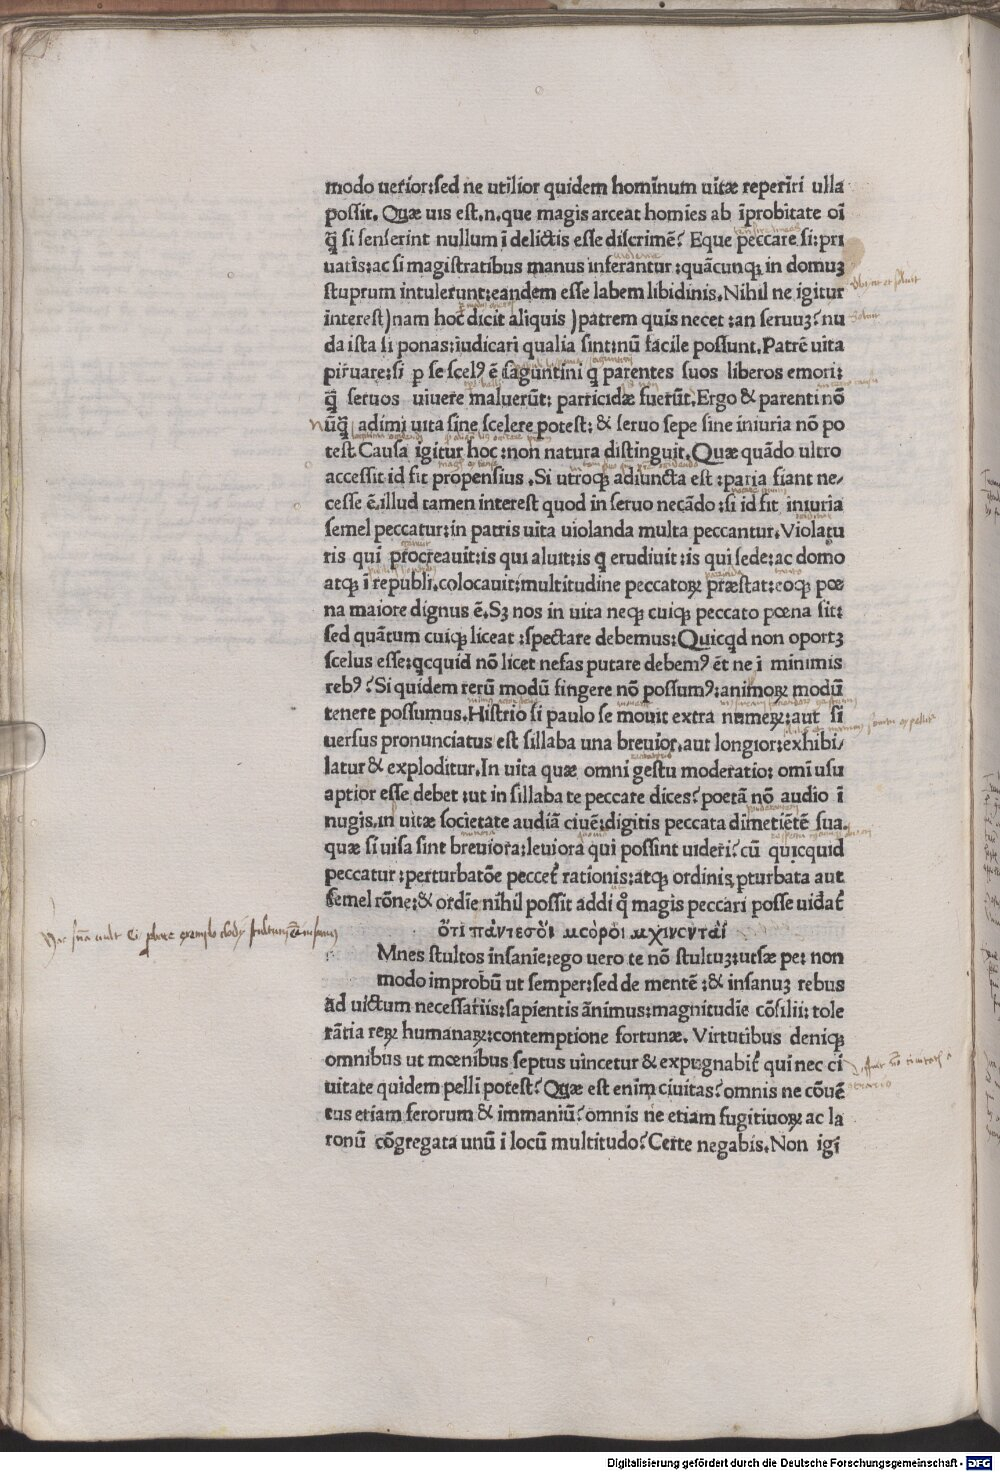 modo uerior:sed ne utilior quidem hominum uitæ reperiri ulla
possit. Quæ uis est.n.que magis arceat homīes ab īprobitate oī
q̄ȝ si senserint nullum ī delictis esse discrimē? Eque peccare si:pri
uatis:ac si magistratibus manus inferantur:quācunqȝ in domuȝ
stuprum intulerunt:eandem esse labem libidinis.Nihil ne igitur
interest)nam hoc dicit aliquis )patrem quis necet:an seruuȝ?nu
da ista si ponas:iudicari qualia sint:nū facile possunt.Patrē uita
priuare:si ꝑ se scelꝰ ē saguntini q̄ parentes suos liberos emori:
q̄ȝ seruos uiuere maluerūt: parricidæ fuerūt.Ergo & parenti nō
nūq̄ȝ adimi uita sine scelere potest: & seruo sepe sine iniuria nō po
test.Causa igitur hoc:non natura distinguit.Quæ quādo ultro
accessit id fit propensius .Si utroqȝ adiuncta est :paria fiant ne/
cesse ē.illud tamen interest quod in seruo necādo:si id fit iniuria
semel peccatur:in patris uita uiolanda multa peccantur.Violatu
ris qui procreauit:is qui aluit:is q̄ erudiuit:is qui sede:ac domo
atqȝ ī republi.colocauit:multitudine peccatoꝝ præstat:eoqȝ pœ
na maiore dignus ē.Sȝ nos in uita neqȝ cuiqȝ peccato pœna sit:
sed quātum cuiqȝ liceat :spectare debemus:Quicqd non oportȝ
scelus esse:qcquid nō licet nefas putare debemꝰ ēt ne ī minimis
rebꝰ?Si quidem rerū modū fingere nō possumꝰ:animoꝝ modū
tenere possumus.Histrio si paulo se mouit extra numeꝝ:aut si
uersus pronunciatus est sillaba una breuior.aut longior:exhibi/
latur & exploditur.In uita quæ omni gestu moderatio: omī usu
aptior esse debet:ut in sillaba te peccare dices?poetā nō audio ī
nugis.in uitæ societate audiā ciuē:digitis peccata dimetiētē sua.
quæ si uisa sint breuiora:leuiora qui possint uideri?cū quicquid
peccatur:perturbatōe pecceť rationis:atqȝ ordinis ꝑturbata aut
semel rōne:& ordīe nihil possit addi q̊ magis peccari posse uidať
ὅτι πάντεσ ὁι μωρόι μαινονται
Mnes stultos insanie:ego uero te nō stultuȝ:ut sæpe: non
modo improbū ut semper:sed de mentē :& insanuȝ rebus
ad uictum necessariis:sapientis ānimus:magnitudīe cōsilii: tole
rātia reꝝ humanaꝝ:contemptione fortunæ. Virtutibus deniqȝ
omnibus ut mœnibus septus uincetur & expugnabiť qui nec ci
uitate quidem pelli potest?Quæ est enim ciuitas?omnis ne cōuē
tus etiam ferorum & immaniū?omnis ne etiam fugitiuoꝝ ac la
tronū cōgregata unū ī locū multitudo?Certe negabis.Non igī
Digitalisierung gefördert durch die Deutsche Forschungsgemeinschaft - DFG